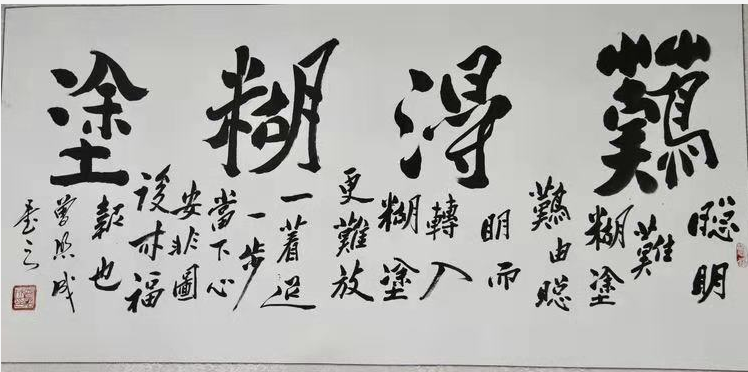 難得糊塗
聰明
難
糊塗
難由聰
明而
轉入
糊塗
更難放
一着退
一步
當下心
安非圖
後来福
報也